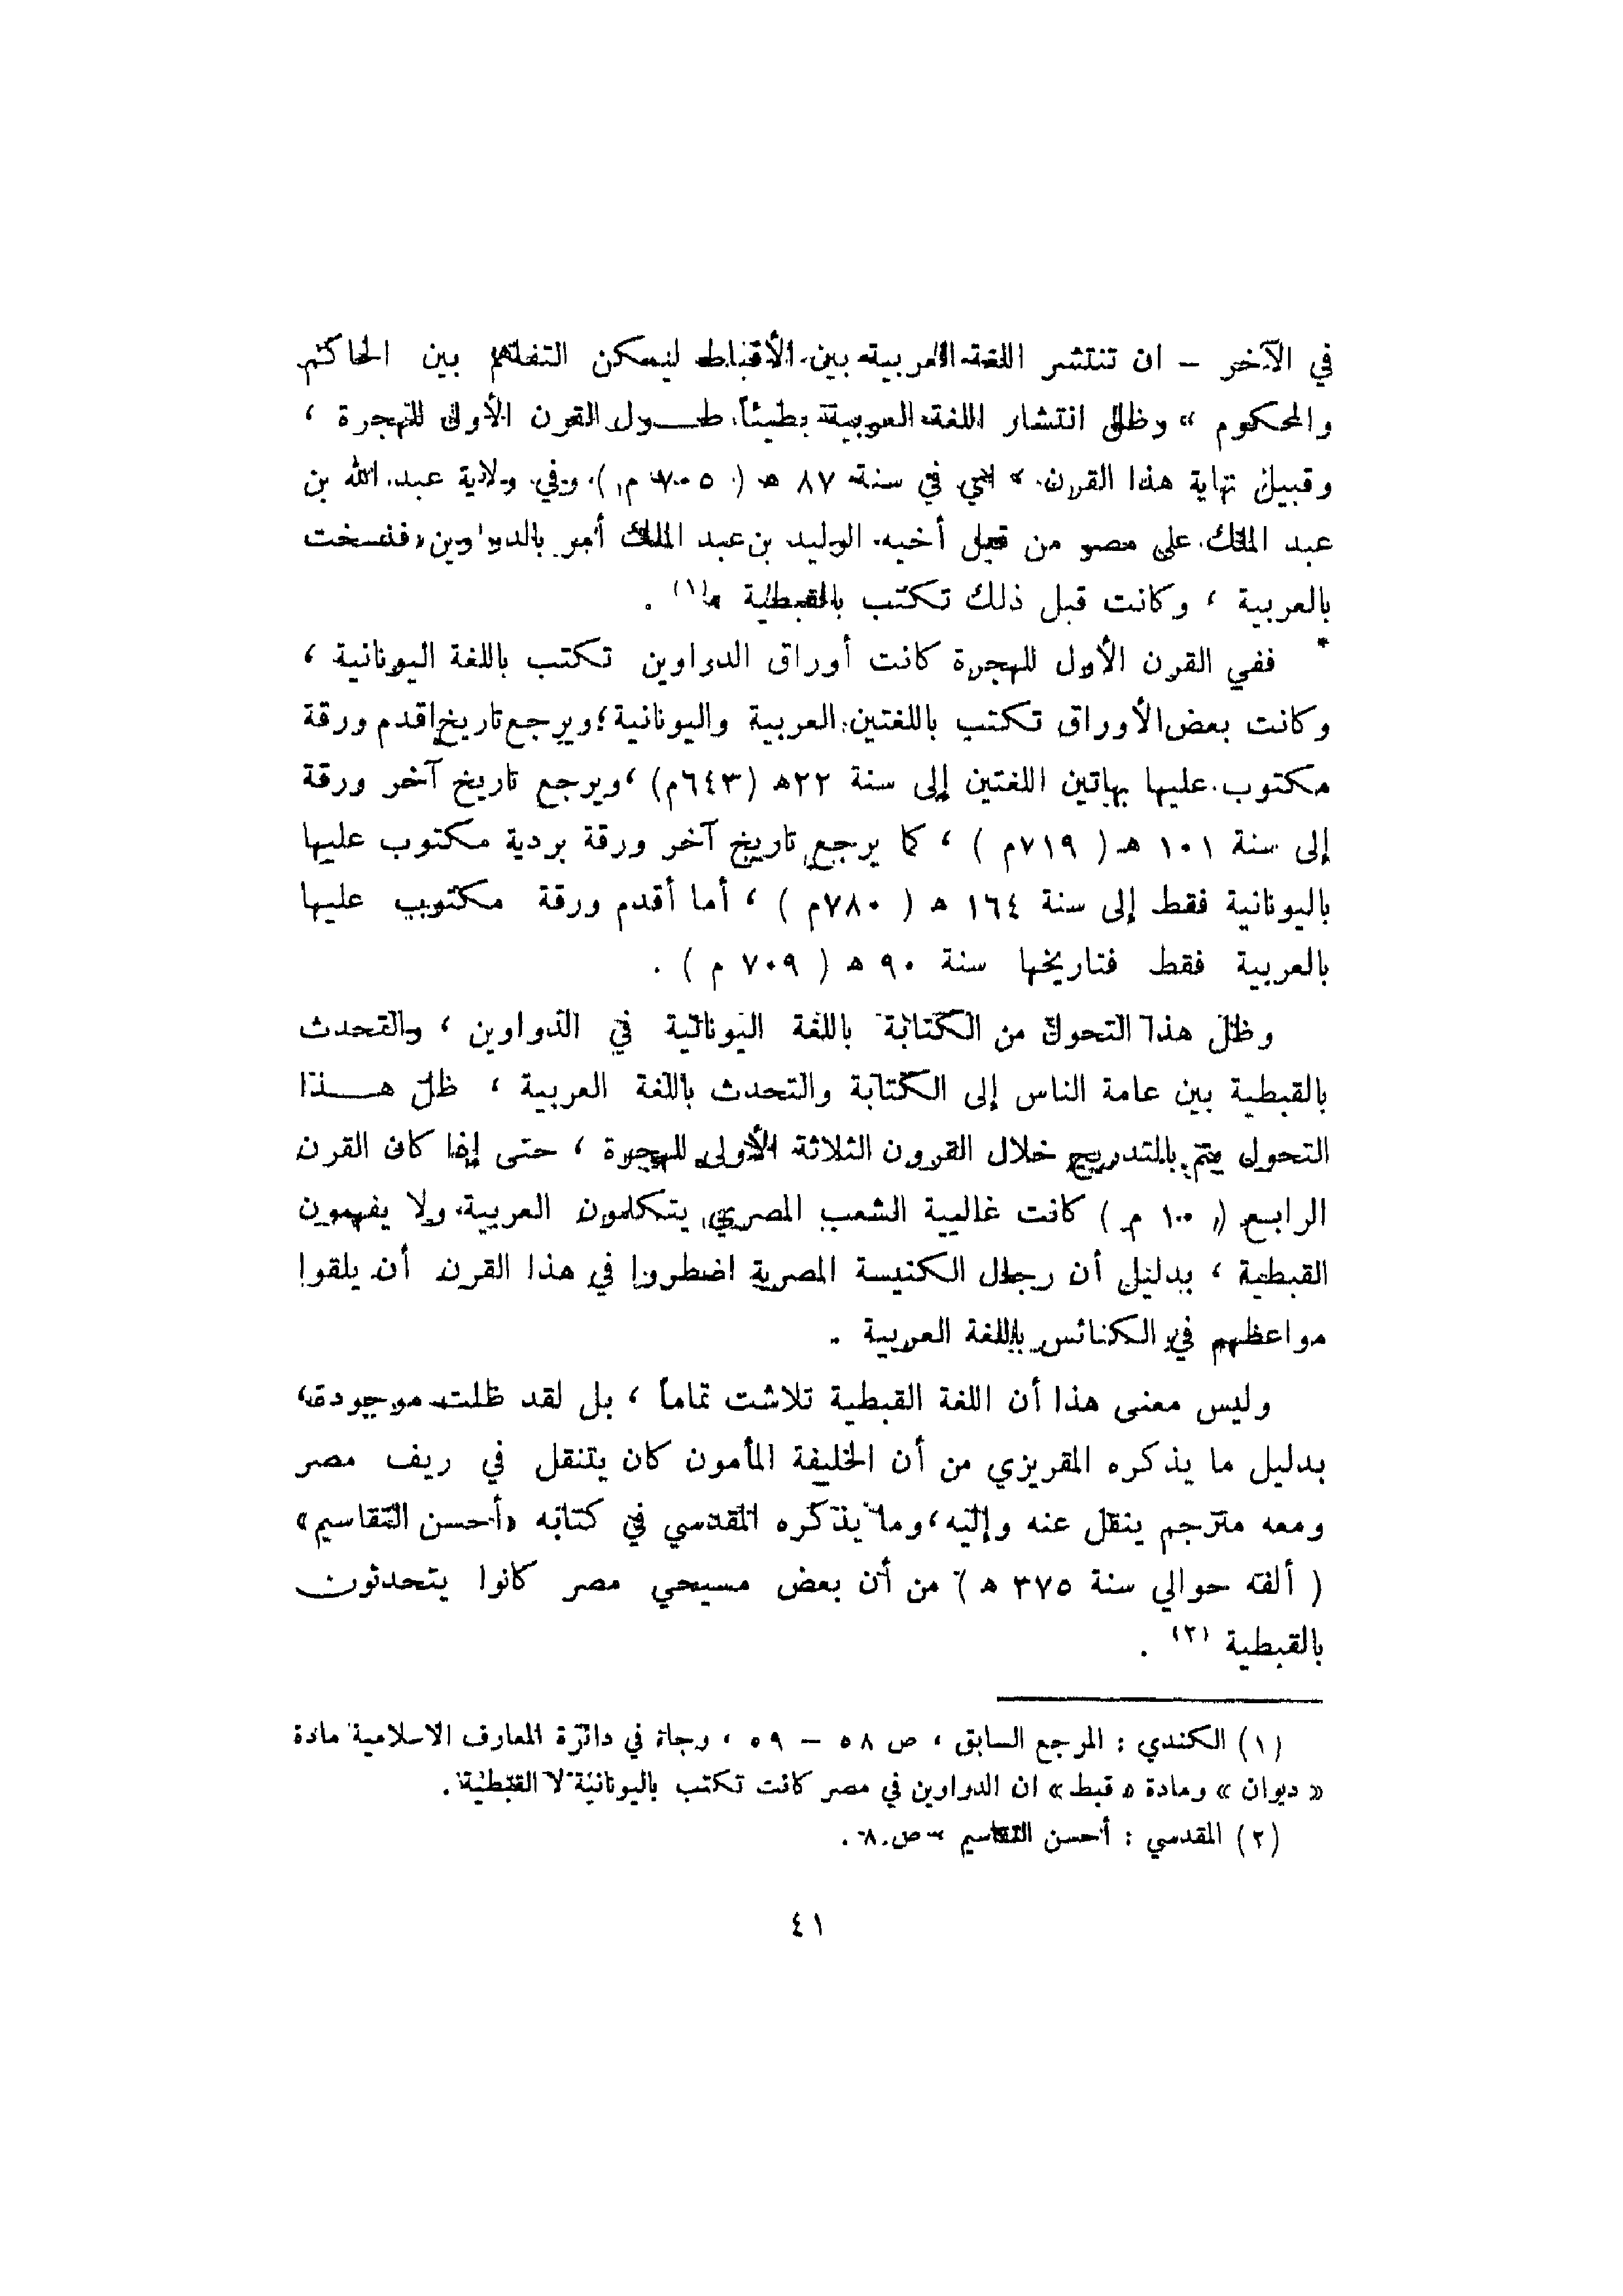 في الآخر – ان تنتشر اللغة العربية بين الأقباط ليمكن التفاهم بين الحاكم
والمحكوم » وظل انتشار اللغة العربية بطيئاً طول القرن الأول للهجرة ،
وقبيل نهاية هذا القرن « أي في سنة ٨٧ ه ( ٧٠٥ م ) وفي ولاية عبد الله بن
عبد الملك على مصر من قبل أخيه الوليد بن عبد الملك أمر بالدواوين فنسخت
بالعربية ، وكانت قبل ذلك تكتب بالقبطية »(١) .
ففي القرن الأول للهجرة كانت أوراق الدواوين تكتب باللغة اليونانية ،
وكانت بعض الأوراق تكتب باللغتين العربية واليونانية ؛ ويرجع تاريخ اقدم ورقة
مكتوب عليها بهاتين اللغتين إلى سنة ٢٢ه (٦٤٣م) ، ويرجع تاريخ آخر ورقة
إلى سنة ١٠١ هـ ( ٧١٩م ) ، كما يرجع تاريخ آخر ورقة بردية مكتوب عليها
باليونانية فقط إلى سنة ١٦٤ ه ( ٧٨٠م ) ، أما أقدم ورقة مكتوب عليها
بالعربية فقط فتاريخها سنة ٩٠ ه ( ٧٠٩ م ) .
وظل هذا التحول من الكتابة باللغة اليونانية في الدواوين ، والتحدث
بالقبطية بين عامة الناس إلى الكتابة والتحدث باللغة العربية ، ظل هذا
التحول يتم بالتدريج خلال القرون الثلاثة الأولى للهجرة ، حتى إذا كان القرن
الرابع ( ١٠٠ م ) كانت غالبية الشعب المصري يتكلمون العربية ولا يفهمون
القبطية ، بدليل أن رجال الكنيسة المصرية اضطروا في هذا القرن أن يلقوا
مواعظهم في الكنائس باللغة العربية .
وليس معنى هذا أن اللغة القبطية تلاشت تماماً ، بل لقد ظلت موجودة ،
بدليل ما يذكره المقريزي من أن الخليفة المأمون كان يتنقل في ريف مصر
ومعه مترجم ينقل عنه وإليه ، وما يذكره المقدسي في كتابه «أحسن التقاسيم»
( ألفه حوالي سنة ٣٧٥ ه ) من أن بعض مسيحي مصر كانوا يتحدثون
بالقبطية (٢) .
(١) الكندي : المرجع السابق ، ص ٥٨ – ٥٩ ، وجاء في دائرة المعارف الاسلامية مادة
« ديوان » ومادة « قبط » ان الدواوين في مصر كانت تكتب باليونانية لا القبطية .
(٢) المقدسي : أحسن التقاسيم ص ٨ .
٤١